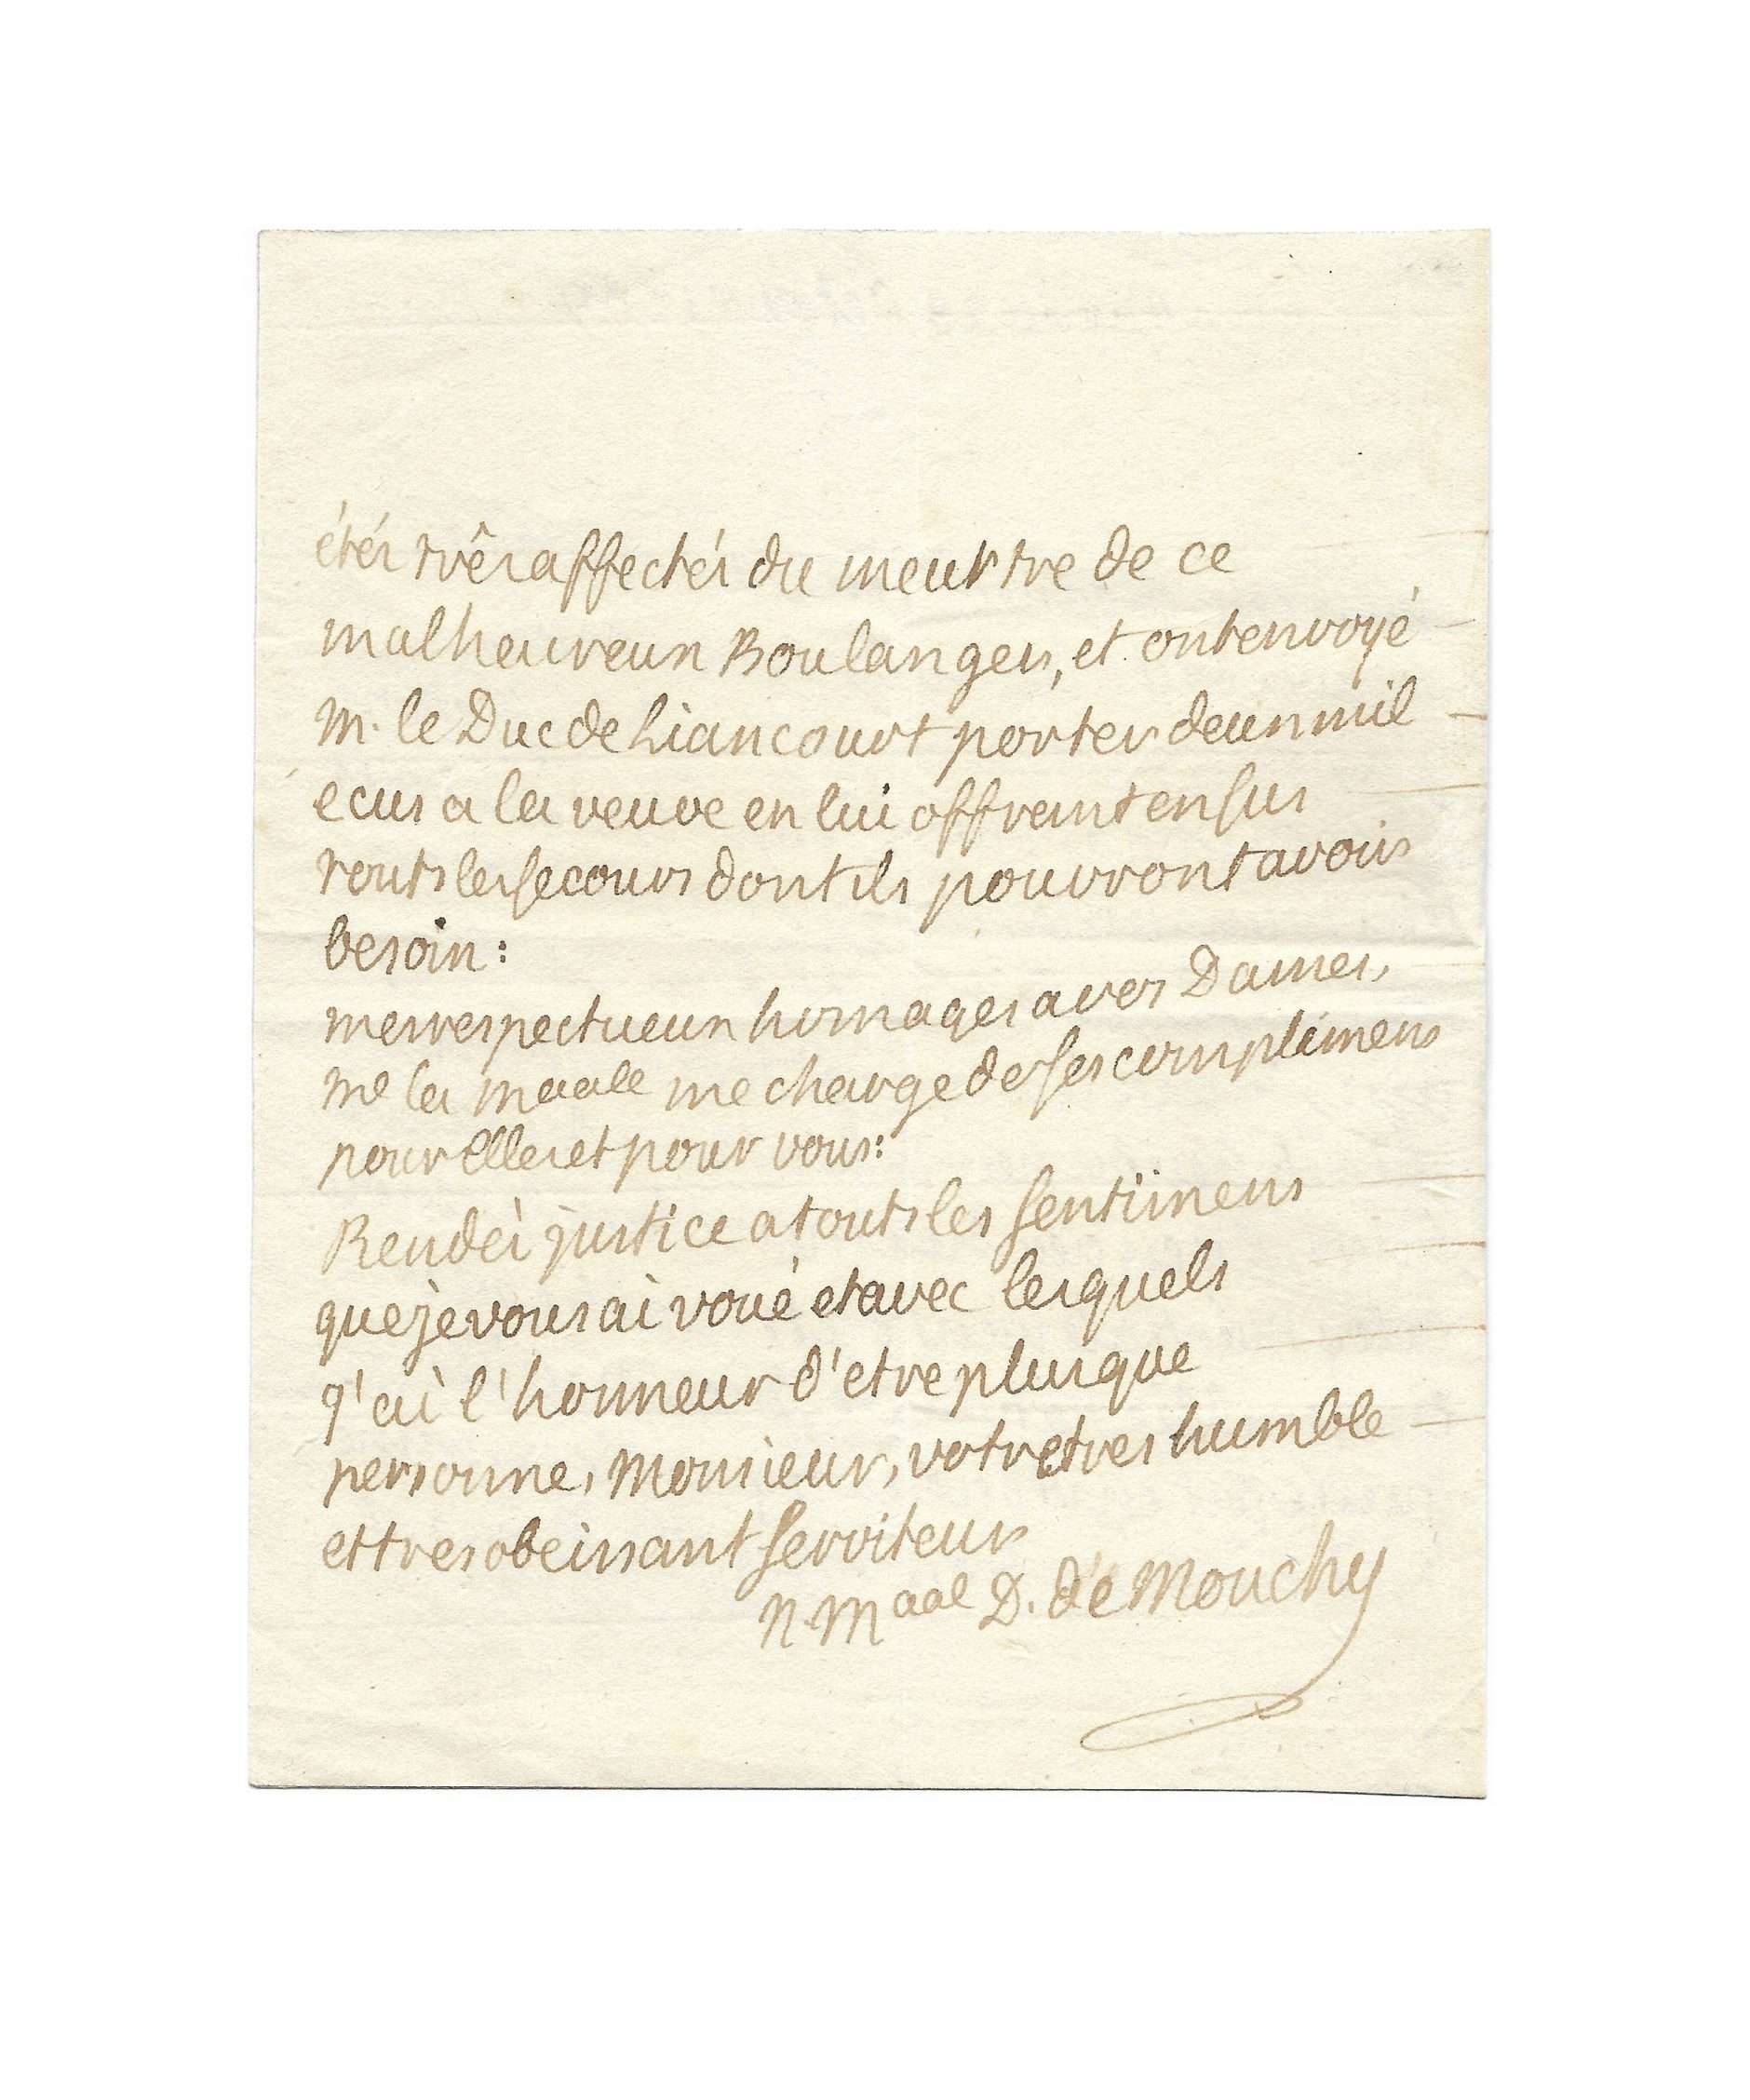 étés três affectés du meurtre de ce
malheureux Boulanger, et ont envoyé
M. le Duc de Liancourt porter deux mil
ecus a la veuve en lui offrant en sus
touts les secours dont ils pourront avoir
besoin:
mes respectueux homages a ves Dames,
me la maale me charge de ses complimens
pour Elles et pour vous:
Rendéz justice a touts les sentimens
que je vous ai voué et avec lesquels
j'ai l'honneur d'etre plus que
personne, Monsieur, votre tres humble
et tres obeissant serviteur
N. Maal D. de Mouchy